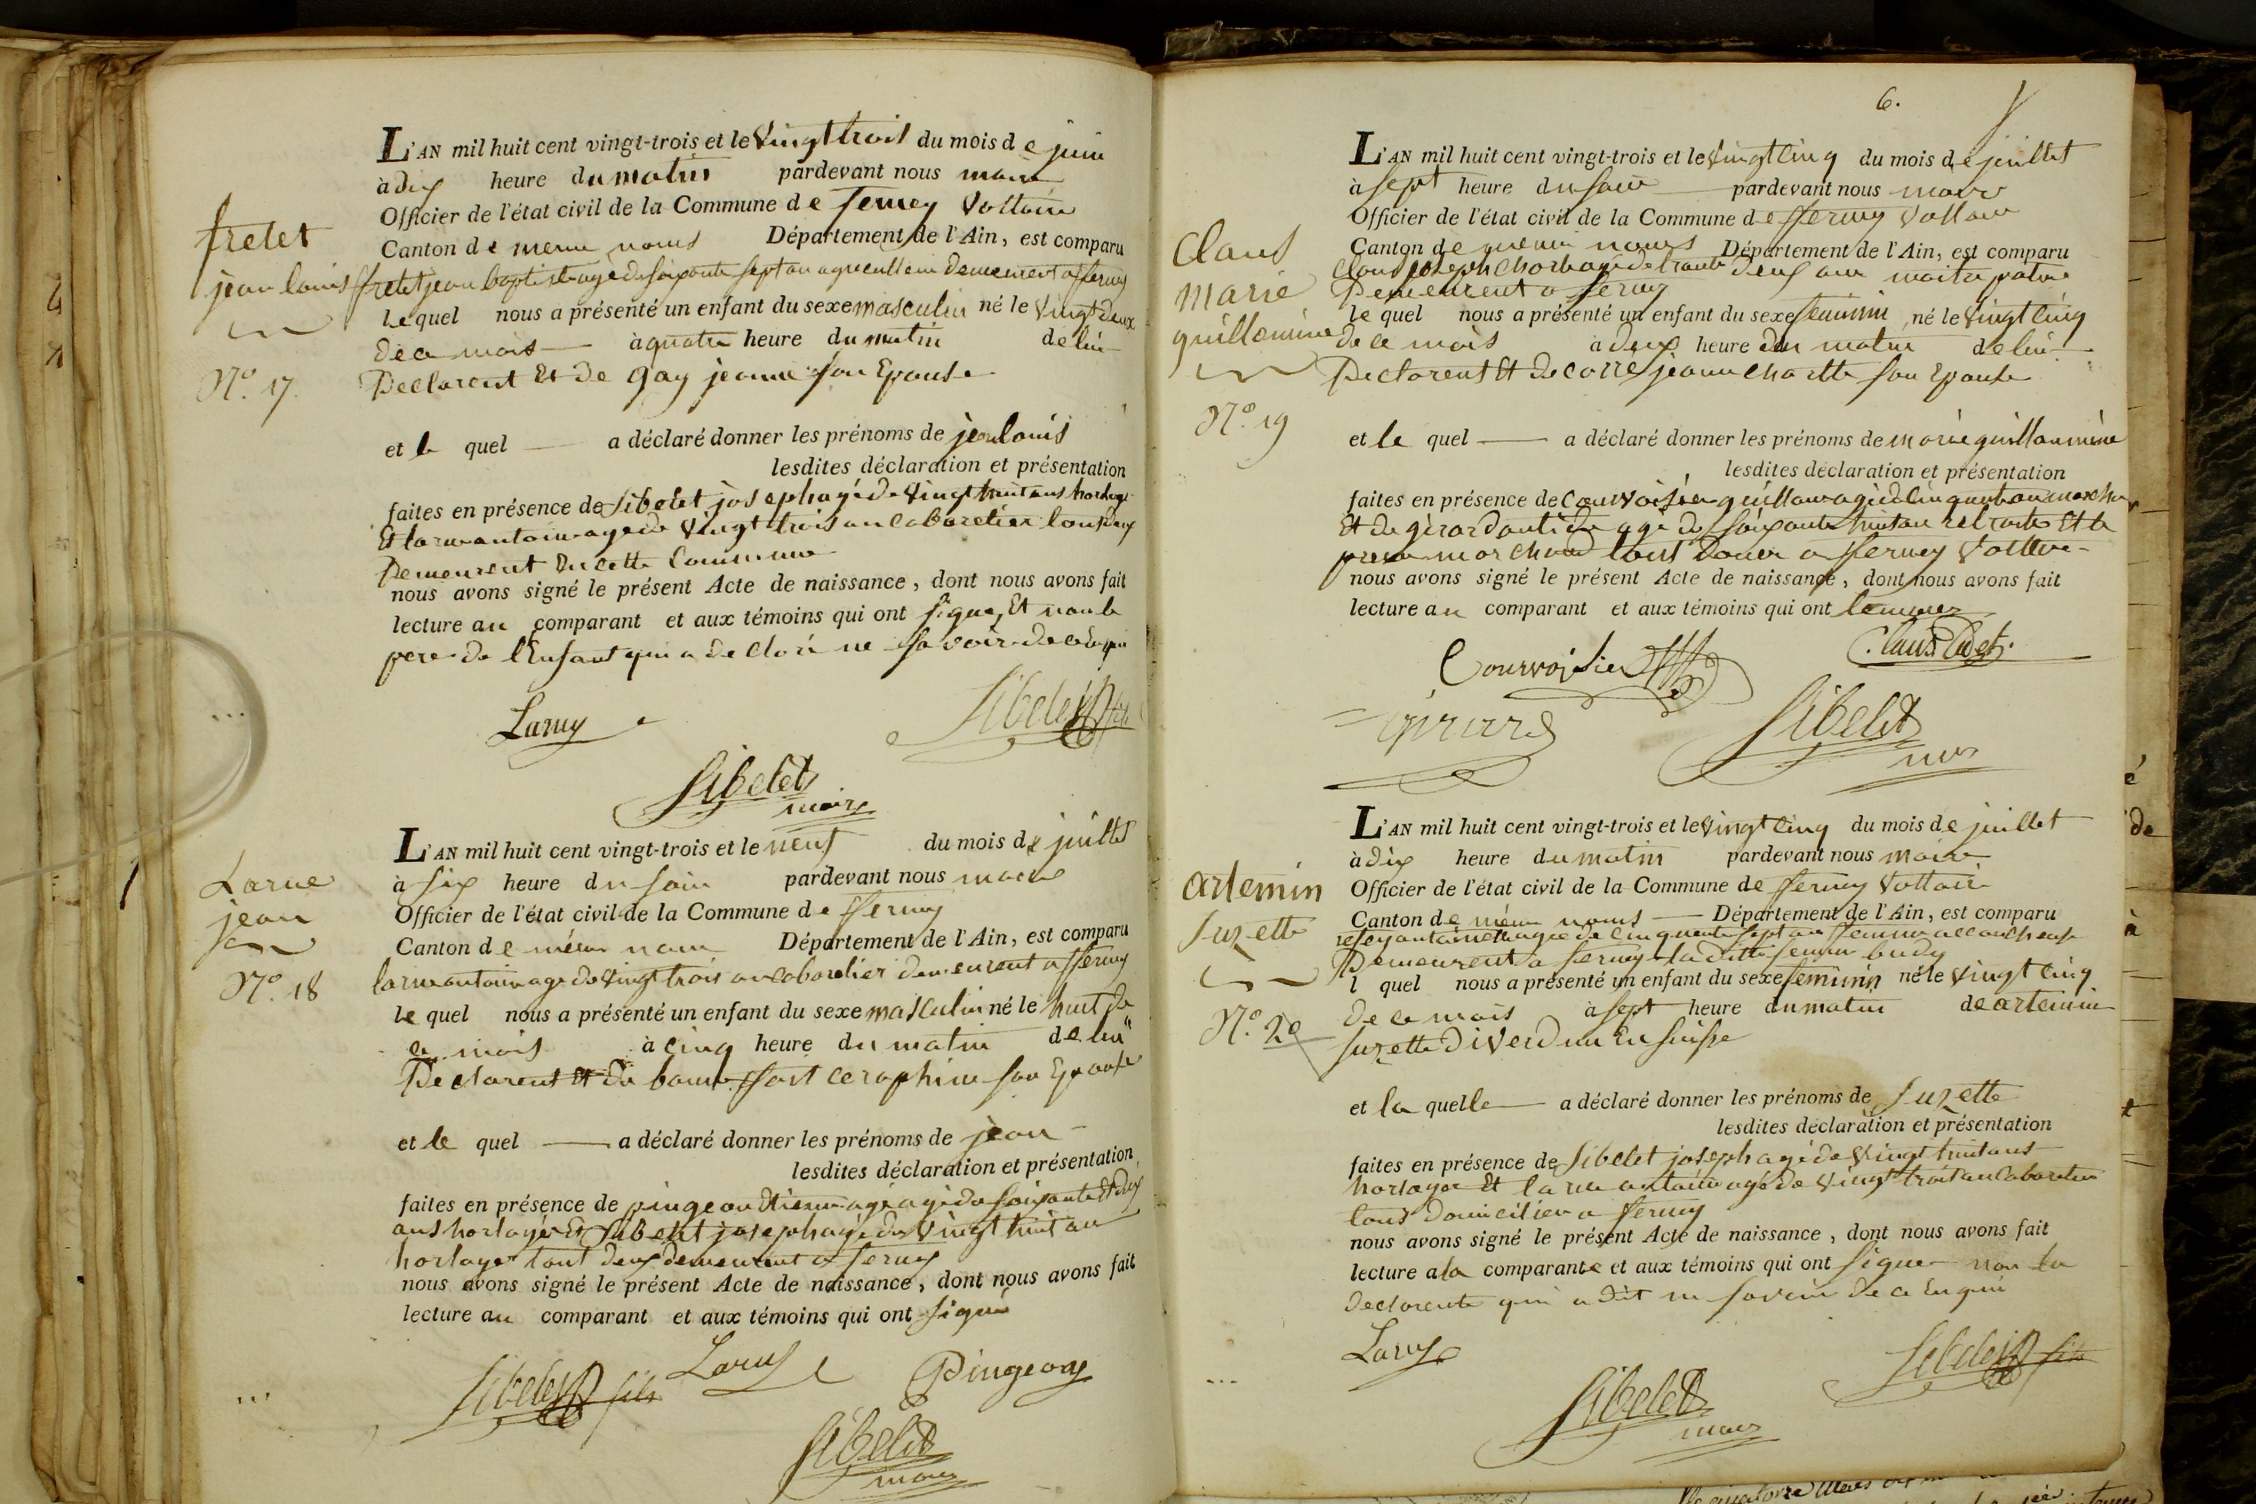 fretet
jean louis
N.º 17.
L'AN mil huit cent vingt-trois et le vingt trois du mois de juin
à dix heure du matin pardevant nous maire
Officier de l'état civil de la Commune de ferney voltaire
Canton de meme noms Département de l'Ain, est comparu
fretet jean baptiste agé de soixante sept an agreculteur demeurent a fferney
le quel nous a présenté un enfant du sexe masculin né le vingt deux
de ce mois à quatre heure du matin de lui
Declarent Et de gay jeanne son Epouse
et le quel a déclaré donner les prénoms de jean louis
lesdites déclaration et présentation
faites en présence de Sibelet joseph agé de vingt huit ans horloger
Et larue antoine age de vingt trois an cabaretier tous deux
Demeurent En cette Commune
nous avons signé le présent Acte de naissance, dont nous avons fait
lecture au comparant et aux témoins qui ont signe, Et non le
pere de l'Enfant qui a declaré ne savoir de ce Enqui
Laruy
Sibelet fils
Sibelet
maire
Larue
jean
N.º 18
L'AN mil huit cent vingt-trois et le neuf du mois de juillet
à six heure du soir pardevant nous maire
Officier de l'état civil de la Commune de fferney
Canton de méme nom Département de l'Ain, est comparu
larue antoine age de vingt trois an cabaretier demeurent a fferney
le quel nous a présenté un enfant du sexe masculin né le huit de
ce mois à cinq heure du matin de lui
Declarent Et de ceraphine son Epouse
et le quel a déclaré donner les prénoms de jean
lesdites déclaration et présentation
faites en présence de pingeon Etienne agé agé de soixante Et dix
ans horloger Et Sibelet joseph agé de vingt huit an
horloger tout deux demeurent a ferney
nous avons signé le présent Acte de naissance, dont nous avons fait
lecture au comparant et aux témoins qui ont signé
Sibelet fils
Laruy
Pingeon
Sibelet
maire
6.
Claus
marie
guillomine
N.º 19
L'AN mil huit cent vingt-trois et le vingt cinq du mois de juillet
à sept heure du soir pardevant nous maire
Officier de l'état civil de la Commune de fferney voltaire
Canton de meme noms Département de l'Ain, est comparu
Claus joseph agé de trante deux ans
Demeurent a ferney
le quel nous a présenté un enfant du sexe feminin né le vingt cinq
de ce mois à deux heure du matin de lui
Declarent Et de corre jeanne son Epouse
et le quel a déclaré donner les prénoms de marie guillaumine
lesdites déclaration et présentation
faites en présence de courvoisier guillaume agé de cinquante an marchan
Et de girard antide agé de soixante huit an retraité Et le
premier marchand tous a fferney voltaire
nous avons signé le présent Acte de naissance, dont nous avons fait
lecture au comparant et aux témoins qui ont
Courvoisier
Claus Cadet
Girard
Sibelet
maire
artemin
Suzette
N.º 20
L'AN mil huit cent vingt-trois et le vingt cinq du mois de juillet
à dix heure du matin pardevant nous maire
Officier de l'état civil de la Commune de fferney voltaire
Canton de méme noms Département de l'Ain, est comparu
agée de cinquante sept an femme accoucheuse
Demeurent a ferney laditte femme budy
l quel nous a présenté un enfant du sexe féminin né le vingt cinq
de ce mois à sept heure du matin de artemin
suzette en suisse
et la quelle a déclaré donner les prénoms de Suzette
lesdites déclaration et présentation
faites en présence de Sibelet joseph agé de vingt huit ans
horloger Et larue antoine agé de vingt trois an cabaretier
tous domicilier a ferney
nous avons signé le présent Acte de naissance, dont nous avons fait
lecture a la comparante et aux témoins qui ont signer non la
declarente qui a dit ne savoir de ce Enqui
Laruy
Sibelet fils
Sibelet
maire